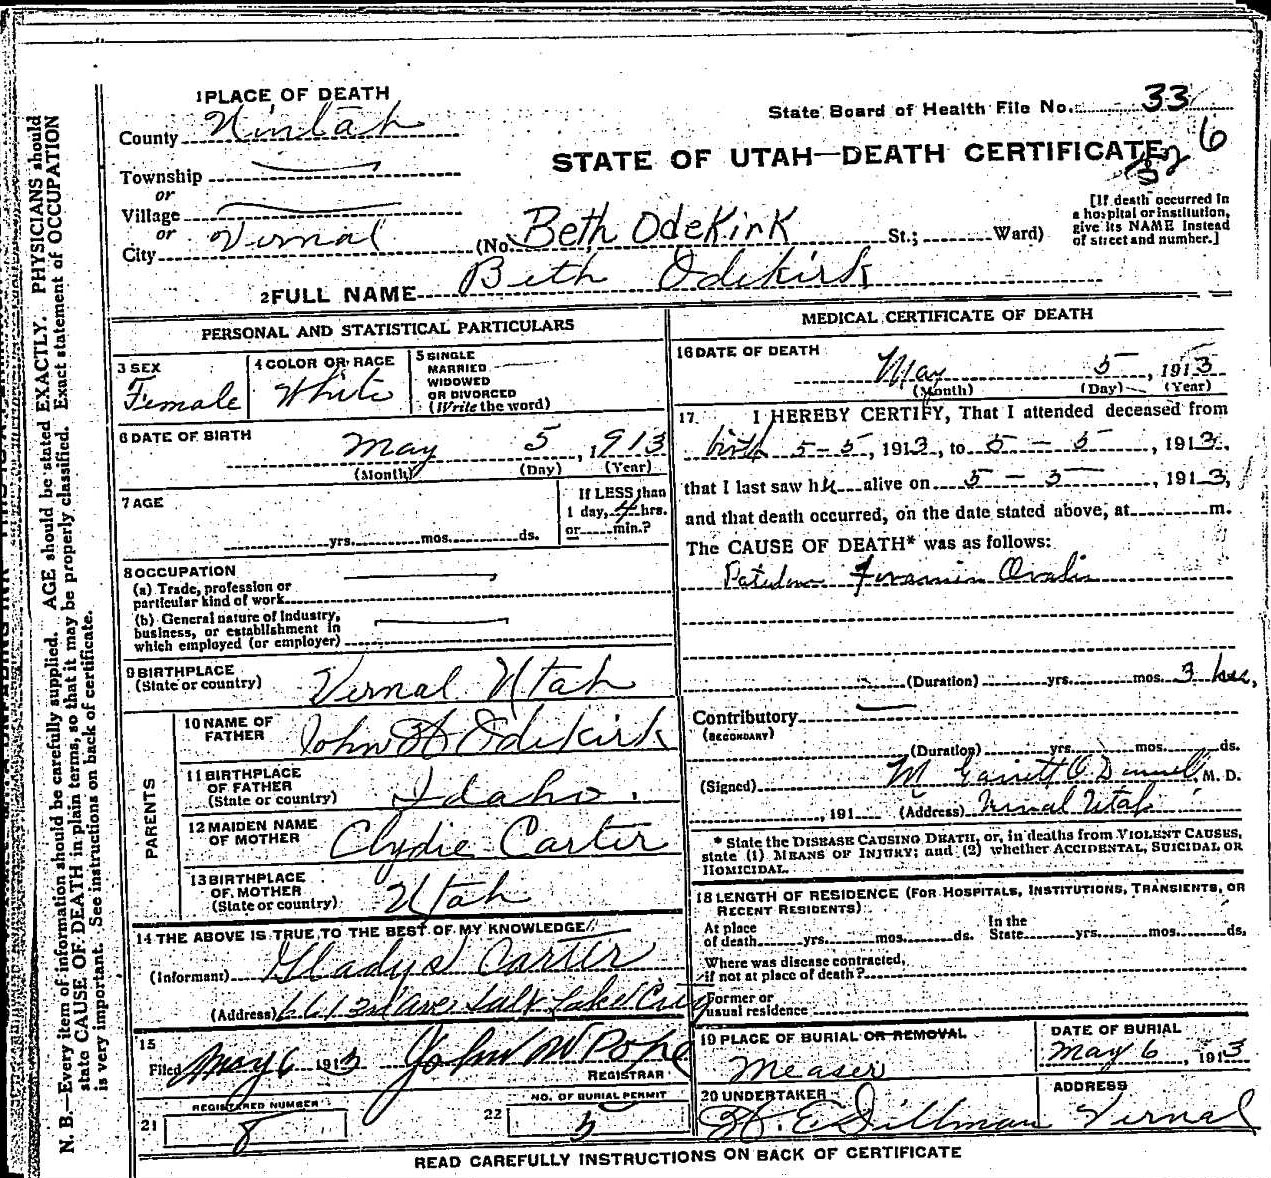 1 PLACE OF DEATH
County Uintah
Township
or
Village
or
City Vernal (No. Beth Odekirk St.; Ward)
State Board of Health File No. 33
6
STATE OF UTAH—DEATH CERTIFICATE
[If death occurred in
a hospital or institution,
give its NAME instead
of street and number.]
2 FULL NAME Beth Odekirk
PERSONAL AND STATISTICAL PARTICULARS
3 SEX
Female
4 COLOR OR RACE
White
5 SINGLE
MARRIED
WIDOWED
OR DIVORCED
(Write the word)
6 DATE OF BIRTH
May 5, 1913
(Month) (Day) (Year)
7 AGE
yrs. mos. ds.
If LESS than
1 day, 4 hrs.
or min.?
8 OCCUPATION
(a) Trade, profession or
particular kind of work
(b) General nature of industry,
business, or establishment in
which employed (or employer)
9 BIRTHPLACE
(State or country) Vernal Utah
PARENTS
10 NAME OF
FATHER John H Odekirk
11 BIRTHPLACE
OF FATHER
(State or country) Idaho.
12 MAIDEN NAME
OF MOTHER Clydie Carter
13 BIRTHPLACE
OF MOTHER
(State or country) Utah
14 THE ABOVE IS TRUE TO THE BEST OF MY KNOWLEDGE
(Informant) Gladys Carter
(Address) 661 3rd Ave Salt Lake City
15
Filed May 6 1913 John W Pope
REGISTRAR
21 REGISTERED NUMBER
8
22 NO. OF BURIAL PERMIT
5
MEDICAL CERTIFICATE OF DEATH
16 DATE OF DEATH
May 5, 1913
(Month) (Day) (Year)
17. I HEREBY CERTIFY, That I attended deceased from
birth 5-5, 1913, to 5-5, 1913,
that I last saw her alive on 5-5, 1913,
and that death occurred, on the date stated above, at m.
The CAUSE OF DEATH* was as follows:
Foramin Ovalis
(Duration) yrs. mos. 3 hrs,
Contributory
(SECONDARY)
(Duration) yrs. mos. ds.
(Signed) M Garrett O'Donnell, M. D.
, 191 (Address) Vernal Utah
* State the DISEASE CAUSING DEATH, or, in deaths from VIOLENT CAUSES,
state (1) MEANS OF INJURY; and (2) whether ACCIDENTAL, SUICIDAL OR
HOMICIDAL.
18 LENGTH OF RESIDENCE (FOR HOSPITALS, INSTITUTIONS, TRANSIENTS, OR
RECENT RESIDENTS)
At place
of death yrs. mos. ds. In the
State yrs. mos. ds.
Where was disease contracted,
if not at place of death?
Former or
usual residence
19 PLACE OF BURIAL OR REMOVAL
Measer
DATE OF BURIAL
May 6, 1913
20 UNDERTAKER
H. E Dillman
ADDRESS
Vernal
READ CAREFULLY INSTRUCTIONS ON BACK OF CERTIFICATE
N. B.—Every item of information should be carefully supplied. AGE should be stated EXACTLY. PHYSICIANS should
state CAUSE OF DEATH in plain terms, so that it may be properly classified. Exact statement of OCCUPATION
is very important. See instructions on back of certificate.